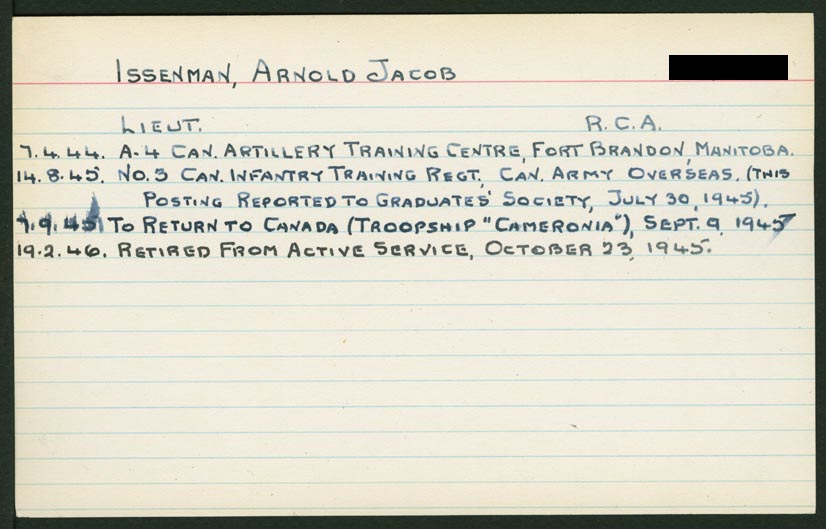 ISSENMAN, ARNOLD JACOB
LIEUT. R.C.A.
7.4.44. A-4 CAN. ARTILLERY TRAINING CENTRE, FORT BRANDON, MANITOBA.
14.8.45. NO. 3 CAN. INFANTRY TRAINING REGT., CAN. ARMY OVERSEAS. (THIS
POSTING REPORTED TO GRADUATES' SOCIETY, JULY 30, 1945).
7.9.45 TO RETURN TO CANADA (TROOPSHIP "CAMERONIA"), SEPT. 9, 1945
19.2.46. RETIRED FROM ACTIVE SERVICE, OCTOBER 23, 1945.